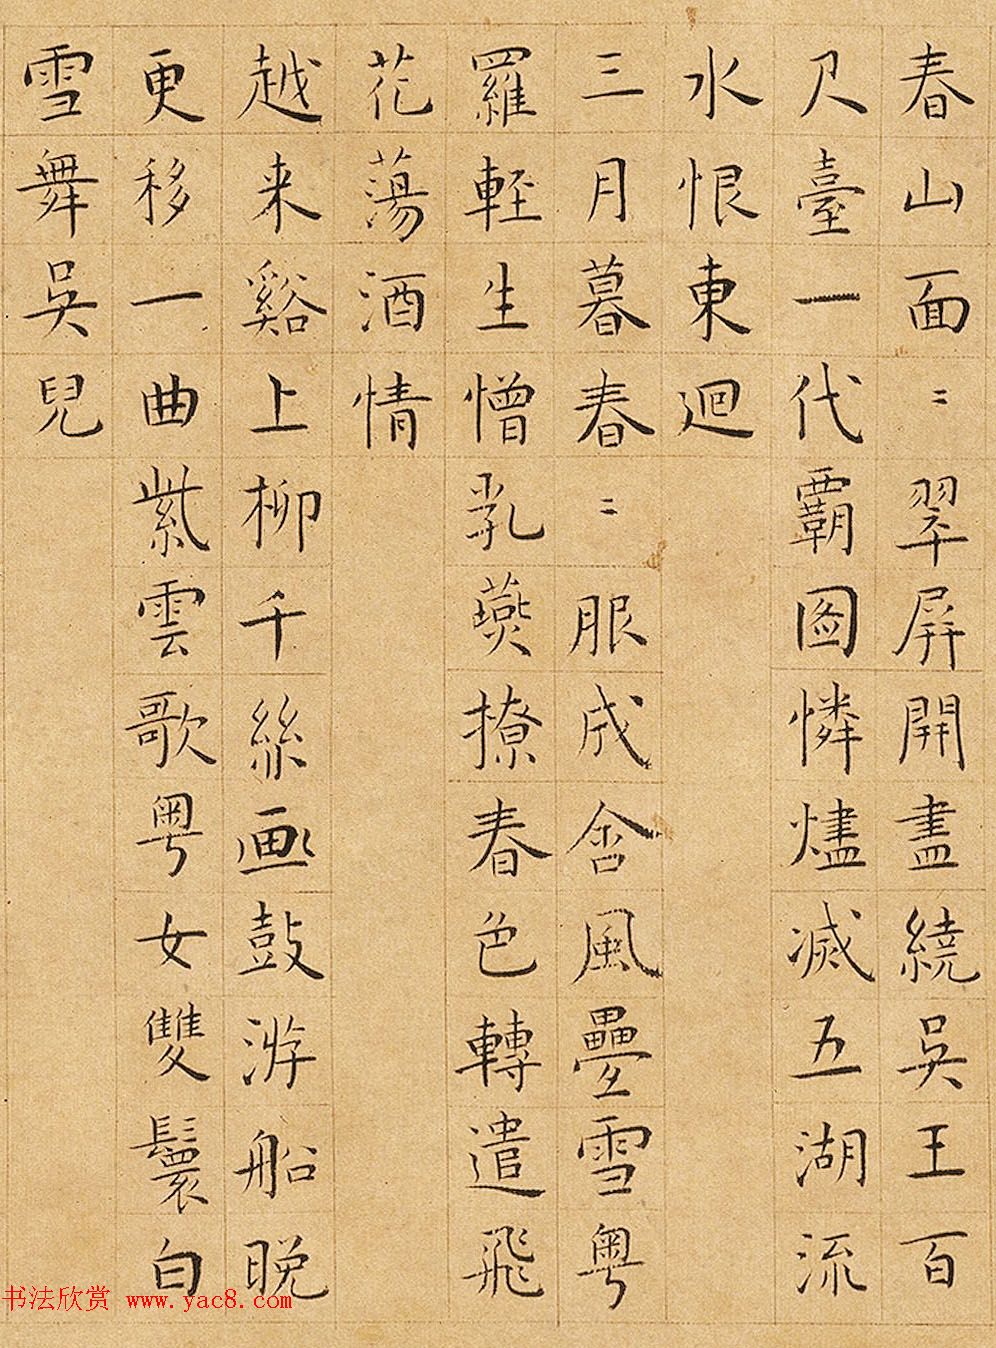 春山面〻翠屏開盡繞吳王百
尺臺一代霸圖憐燼滅五湖流
水恨東迴
三月暮春〻服成含風疊雪粤
羅軽生憎乳燕撩春色轉遣飛
花蕩酒情
越来谿上柳千絲画鼓游船晚
更移一曲紫雲歌粤女雙鬟白
雪舞吳兒
书法欣赏 www.yac8.com